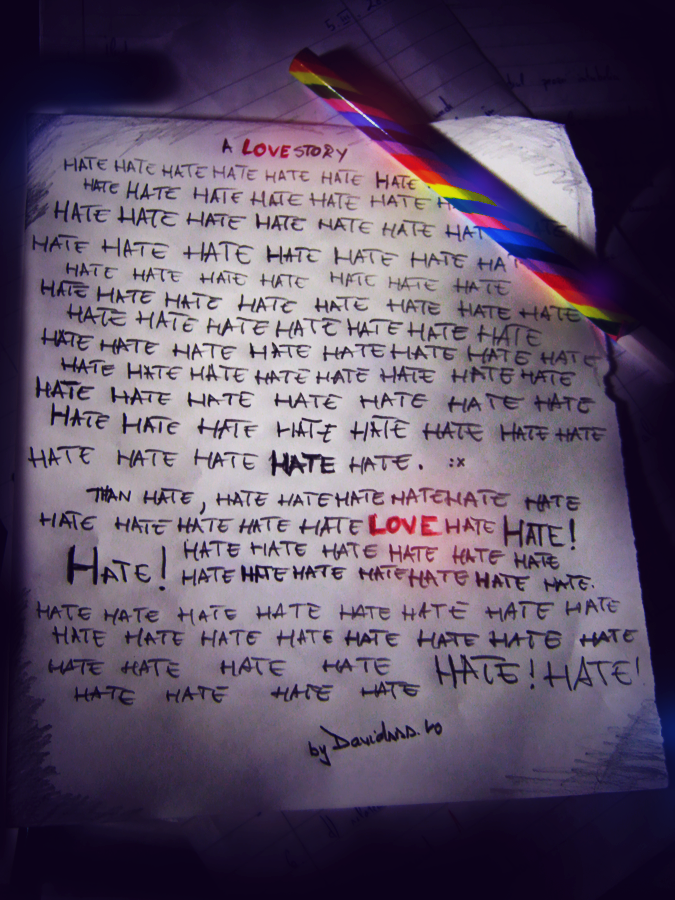 A LOVE STORY
HATE HATE HATE HATE HATE HATE HATE
HATE HATE HATE HATE HATE HATE HATE
HATE HATE HATE HATE HATE HATE HAT
HATE HATE HATE HATE HATE HATE HA
HATE HATE HATE HATE HATE HATE HATE
HATE HATE HATE HATE HATE HATE HATE HATE
HATE HATE HATE HATE HATE HATE HATE
HATE HATE HATE HATE HATE HATE HATE HATE
HATE HATE HATE HATE HATE HATE HATE HATE
HATE HATE HATE HATE HATE HATE HATE
HATE HATE HATE HATE HATE HATE HATE HATE
HATE HATE HATE HATE HATE. :x
THAN HATE, HATE HATE HATE HATE HATE HATE
HATE HATE HATE HATE HATE LOVE HATE HATE!
HATE HATE HATE HATE HATE HATE
HATE! HATE HATE HATE HATE HATE HATE HATE.
HATE HATE HATE HATE HATE HATE HATE HATE
HATE HATE HATE HATE HATE HATE HATE HATE
HATE HATE HATE HATE HATE! HATE!
HATE HATE HATE HATE